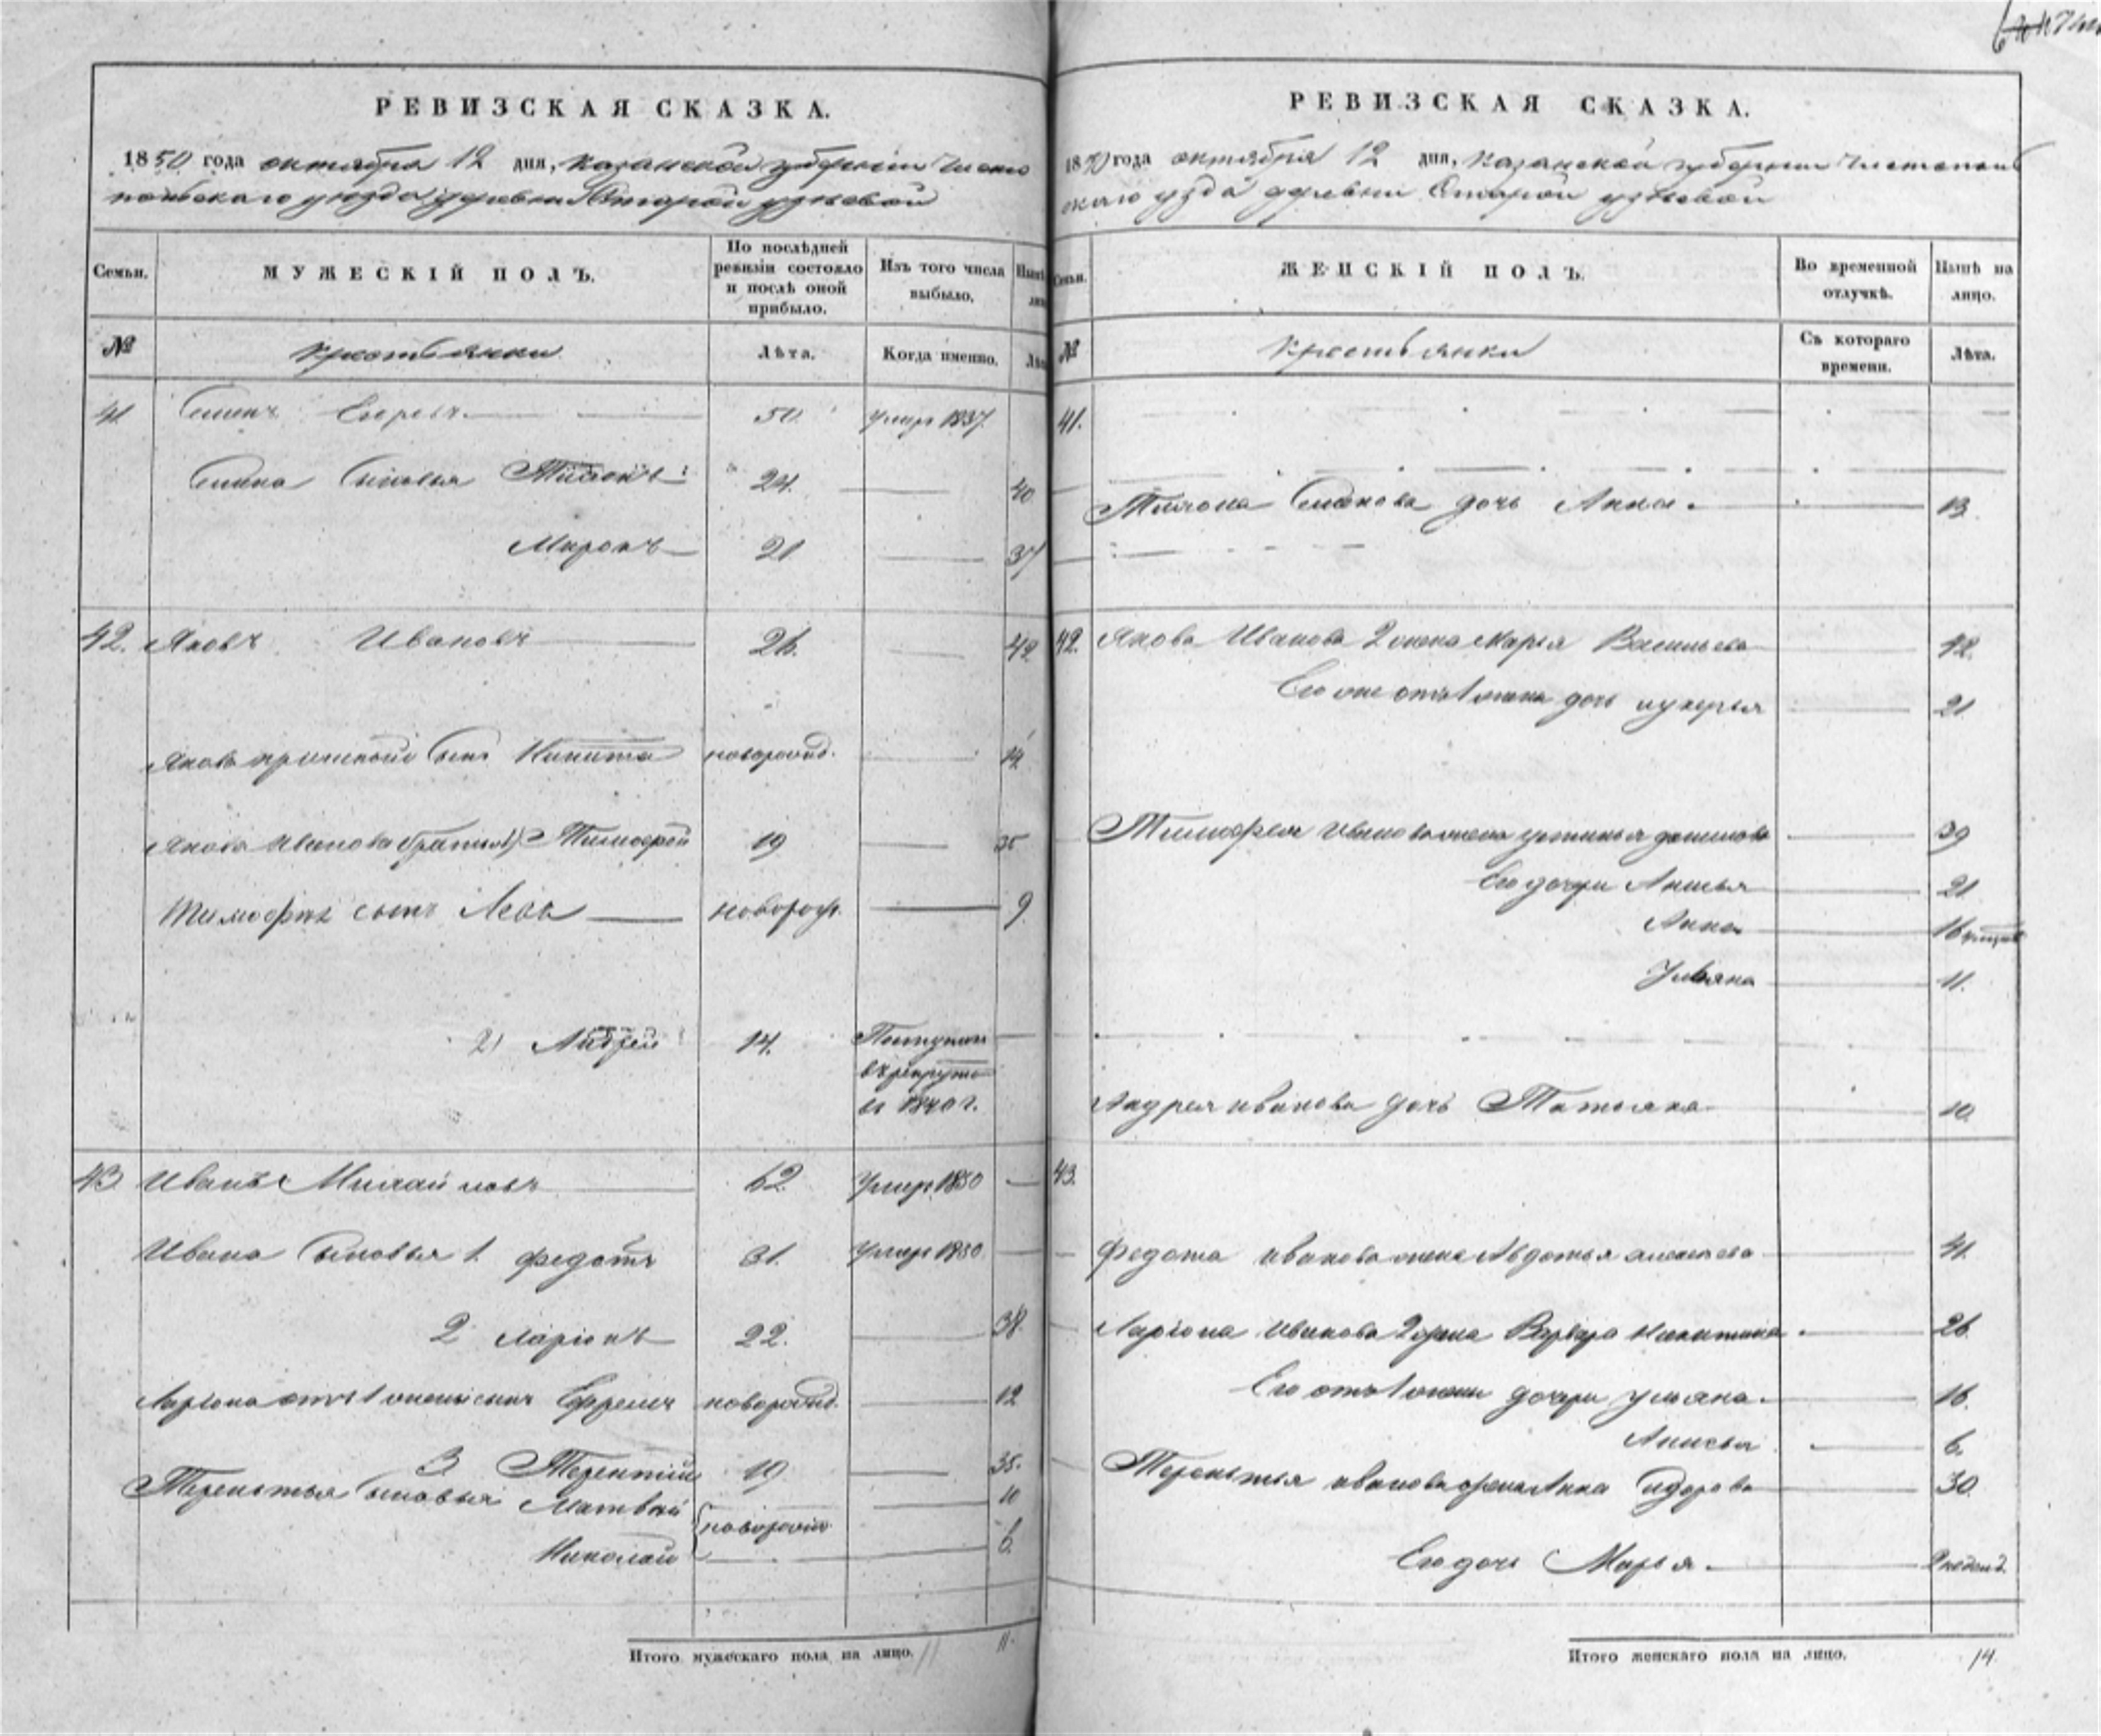 РЕВИЗСКАЯ СКАЗКА.
1850 года октября 12 дня, Казанской губернии Чисто
польскаго уезда деревни Старой узеевой
Семьи.
МУЖЕСКІЙ ПОЛЪ.
По послѣдней ревизіи состояло и послѣ оной прибыло.
Изъ того числа выбыло.
№
Лѣта.
Когда именно.
41. Егоровъ 50 умеръ 1837
сыновья 24. 40
Миронъ 21 37
42. Яковъ Ивановъ 26. 42
Якова сынъ Никита новорожд. 14
Якова Иванова братья 1) Тимофей 19 35
Тимофея сынъ Левъ новорож. 9.
2) Андрей 14. Поступилъ
въ рекруты
въ 1840 г.
43 Иванъ Михайловъ 62. Умеръ 1850
Ивана сыновья 1. Федотъ 31. Умеръ 1850
2 Ларіонъ 22. 38.
Ларіона отъ 1 жены сынъ Ефремъ новорожд. 12
3 Терентій 19 35.
Терентья сыновья Матвей новорожд 10
Николай 6.
Итого мужескаго пола на лицо. 11 11.
РЕВИЗСКАЯ СКАЗКА.
1850 года октября 12 дня, Казанской губернии Чистополь
скаго уезда деревни Старой узеевой
Семьи.
ЖЕНСКІЙ ПОЛЪ.
Во временной отлучкѣ.
Нынѣ на лицо.
№
Съ котораго времени.
Лѣта.
41.
дочь Анна. 13.
42. Якова Иванова 2 жена Марья Васильева 42.
Его же отъ 1 жены дочь лукерья 21
Тимофея Иванова жена устинья 39
Его дочери Анисья 21
Анна 16
Ульяна 11.
Андрея иванова дочь Татьяна 10.
43.
Федота иванова жена Авдотья алексеева 41.
Ларіона Иванова 2 жена Варвара Никитина 26.
Его отъ 1 жены дочери ульяна. 16.
Анисья 6.
Терентья иванова жена Анна Сидорова 30.
Его дочь Марья. недель.
Итого женскаго пола на лицо. 14.